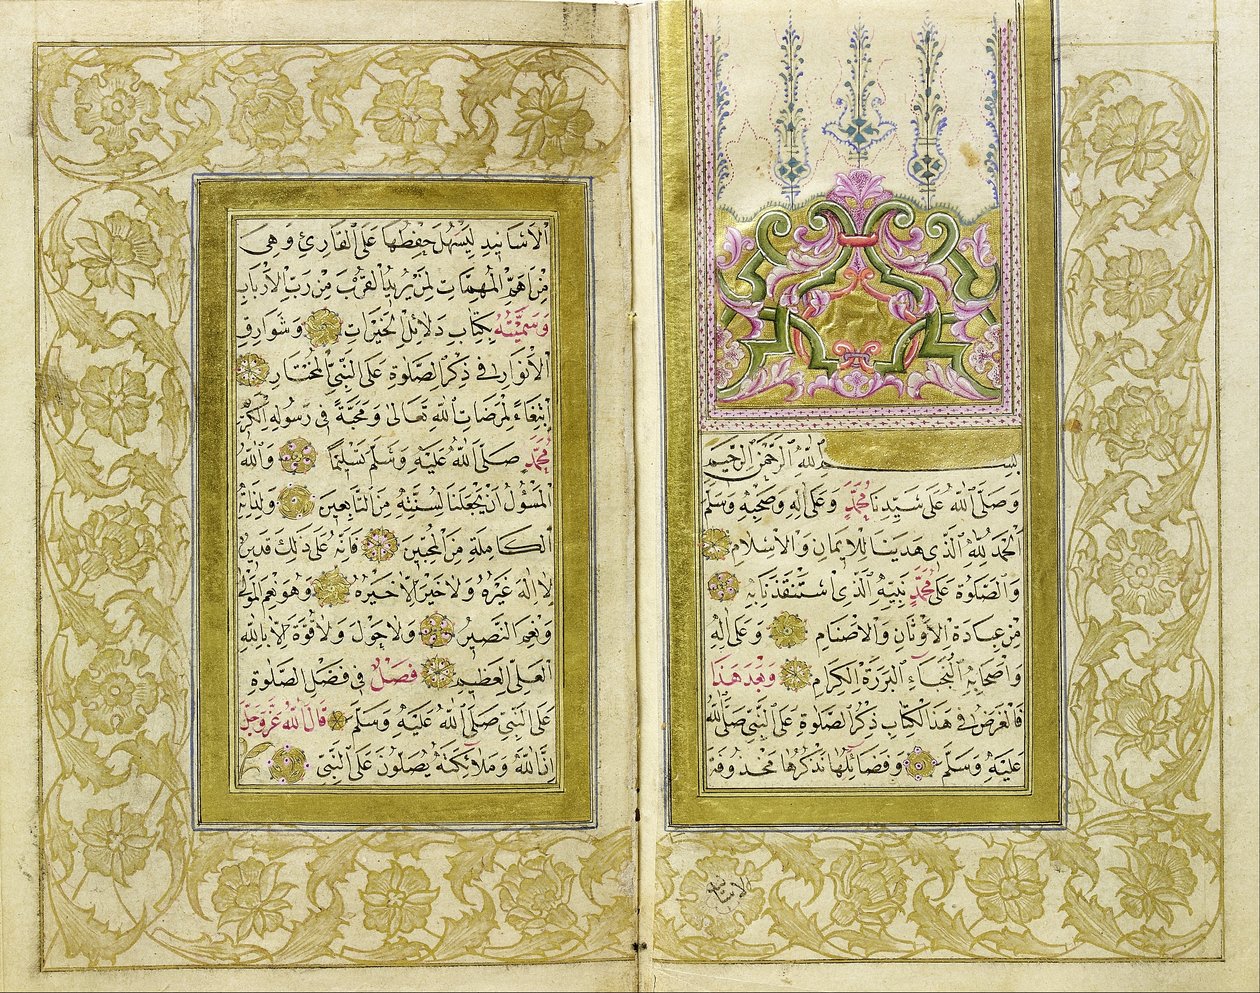 بِسْمِ اللّٰهِ الرَّحْمٰنِ الرَّحِيمِ
وَصَلَّى اللّٰهُ عَلٰى سَيِّدِنَا مُحَمَّدٍ وَعَلٰى اٰلِهِ وَصَحْبِهِ وَسَلَّمَ
اَلْحَمْدُ لِلّٰهِ الَّذِى هَدٰينَا لِلْاِيمَانِ وَالْاِسْلَامِ
وَالصَّلٰوةُ عَلٰى مُحَمَّدٍ نَبِيِّهِ الَّذِى اسْتَنْقَذَنَا بِهِ
مِنْ عِبَادَةِ الْاَوْثَانِ وَالْاَصْنَامِ وَعَلٰى اٰلِهِ
وَاَصْحَابِهِ النُّجَبَاءِ الْبَرَرَةِ الْكِرَامِ وَبَعْدَ هٰذَا
فَالْغَرَضُ فِى هٰذَا الْكِتَابِ ذِكْرُ الصَّلٰوةِ عَلَى النَّبِىِّ صَلَّى اللّٰهُ
عَلَيْهِ وَسَلَّمَ وَفَضَائِلُهَا نَذْكُرُهَا مَحْذُوفَةَ
الاسانيد
الْاَسَانِيدِ لِيَسْهُلَ حِفْظُهَا عَلَى الْقَارِئِ وَهِىَ
مِنْ اَهَمِّ الْمُهِمَّاتِ لِمَنْ يُرِيدُ الْقُرْبَ مِنْ رَبِّ الْاَرْبَابِ
وَسَمَّيْتُهُ بِكِتَابِ دَلَائِلِ الْخَيْرَاتِ وَشَوَارِقِ
الْاَنْوَارِ فِى ذِكْرِ الصَّلٰوةِ عَلَى النَّبِىِّ الْمُخْتَارِ
اِبْتِغَاءً لِمَرْضَاتِ اللّٰهِ تَعَالٰى وَمَحَبَّةً فِى رَسُولِهِ الْكَرِيمِ
مُحَمَّدٍ صَلَّى اللّٰهُ عَلَيْهِ وَسَلَّمَ تَسْلِيمًا وَاللّٰهُ
الْمَسْؤُلُ اَنْ يَجْعَلَنَا لِسُنَّتِهِ مِنَ التَّابِعِينَ وَلِذَاتِهِ
الْكَامِلَةِ مِنَ الْمُحِبِّينَ فَاِنَّهُ عَلٰى ذٰلِكَ قَدِيرٌ
لَا اِلٰهَ غَيْرُهُ وَلَا خَيْرَ اِلَّا خَيْرُهُ وَهُوَ نِعْمَ الْمَوْلٰى
وَنِعْمَ النَّصِيرُ وَلَا حَوْلَ وَلَا قُوَّةَ اِلَّا بِاللّٰهِ
الْعَلِىِّ الْعَظِيمِ فَصْلٌ فِى فَضْلِ الصَّلٰوةِ
عَلَى النَّبِىِّ صَلَّى اللّٰهُ عَلَيْهِ وَسَلَّمَ قَالَ اللّٰهُ عَزَّ وَجَلَّ
اِنَّ اللّٰهَ وَمَلَائِكَتَهُ يُصَلُّونَ عَلَى النَّبِىِّ